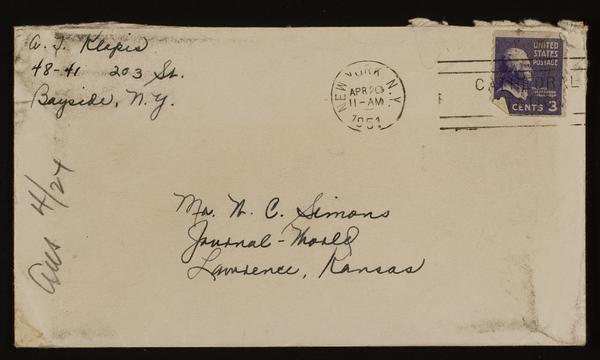 A. J. Klapis
48-41 203 St.
Bayside, N.Y.
NEW YORK, N.Y.
APR 20
11-AM
1951
UNITED
STATES
POSTAGE
CENTS 3
Mr. W. C. Simons
Journal-World
Lawrence, Kansas
Ans 4/24